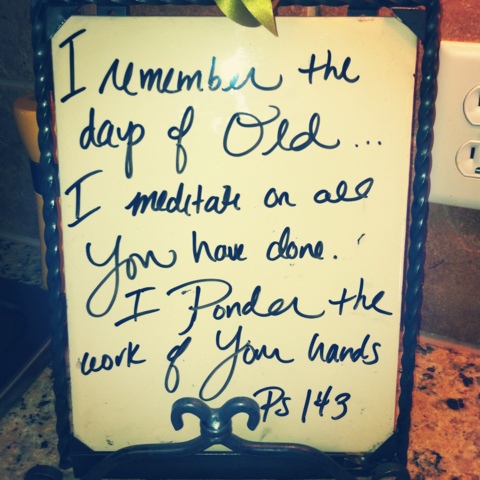 I remember the
days of Old...
I meditate on all
You have done.
I Ponder the
work of Your hands
Ps 143